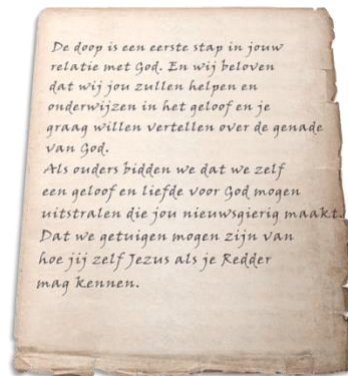 De doop is een eerste stap in jouw
relatie met God. En wij beloven
dat wij jou zullen helpen en
onderwijzen in het geloof en je
graag willen vertellen over de genade
van God.
Als ouders bidden we dat we zelf
een geloof en liefde voor God mogen
uitstralen die jou nieuwsgierig maakt.
Dat we getuigen mogen zijn van
hoe jij zelf Jezus als je Redder
mag kennen.